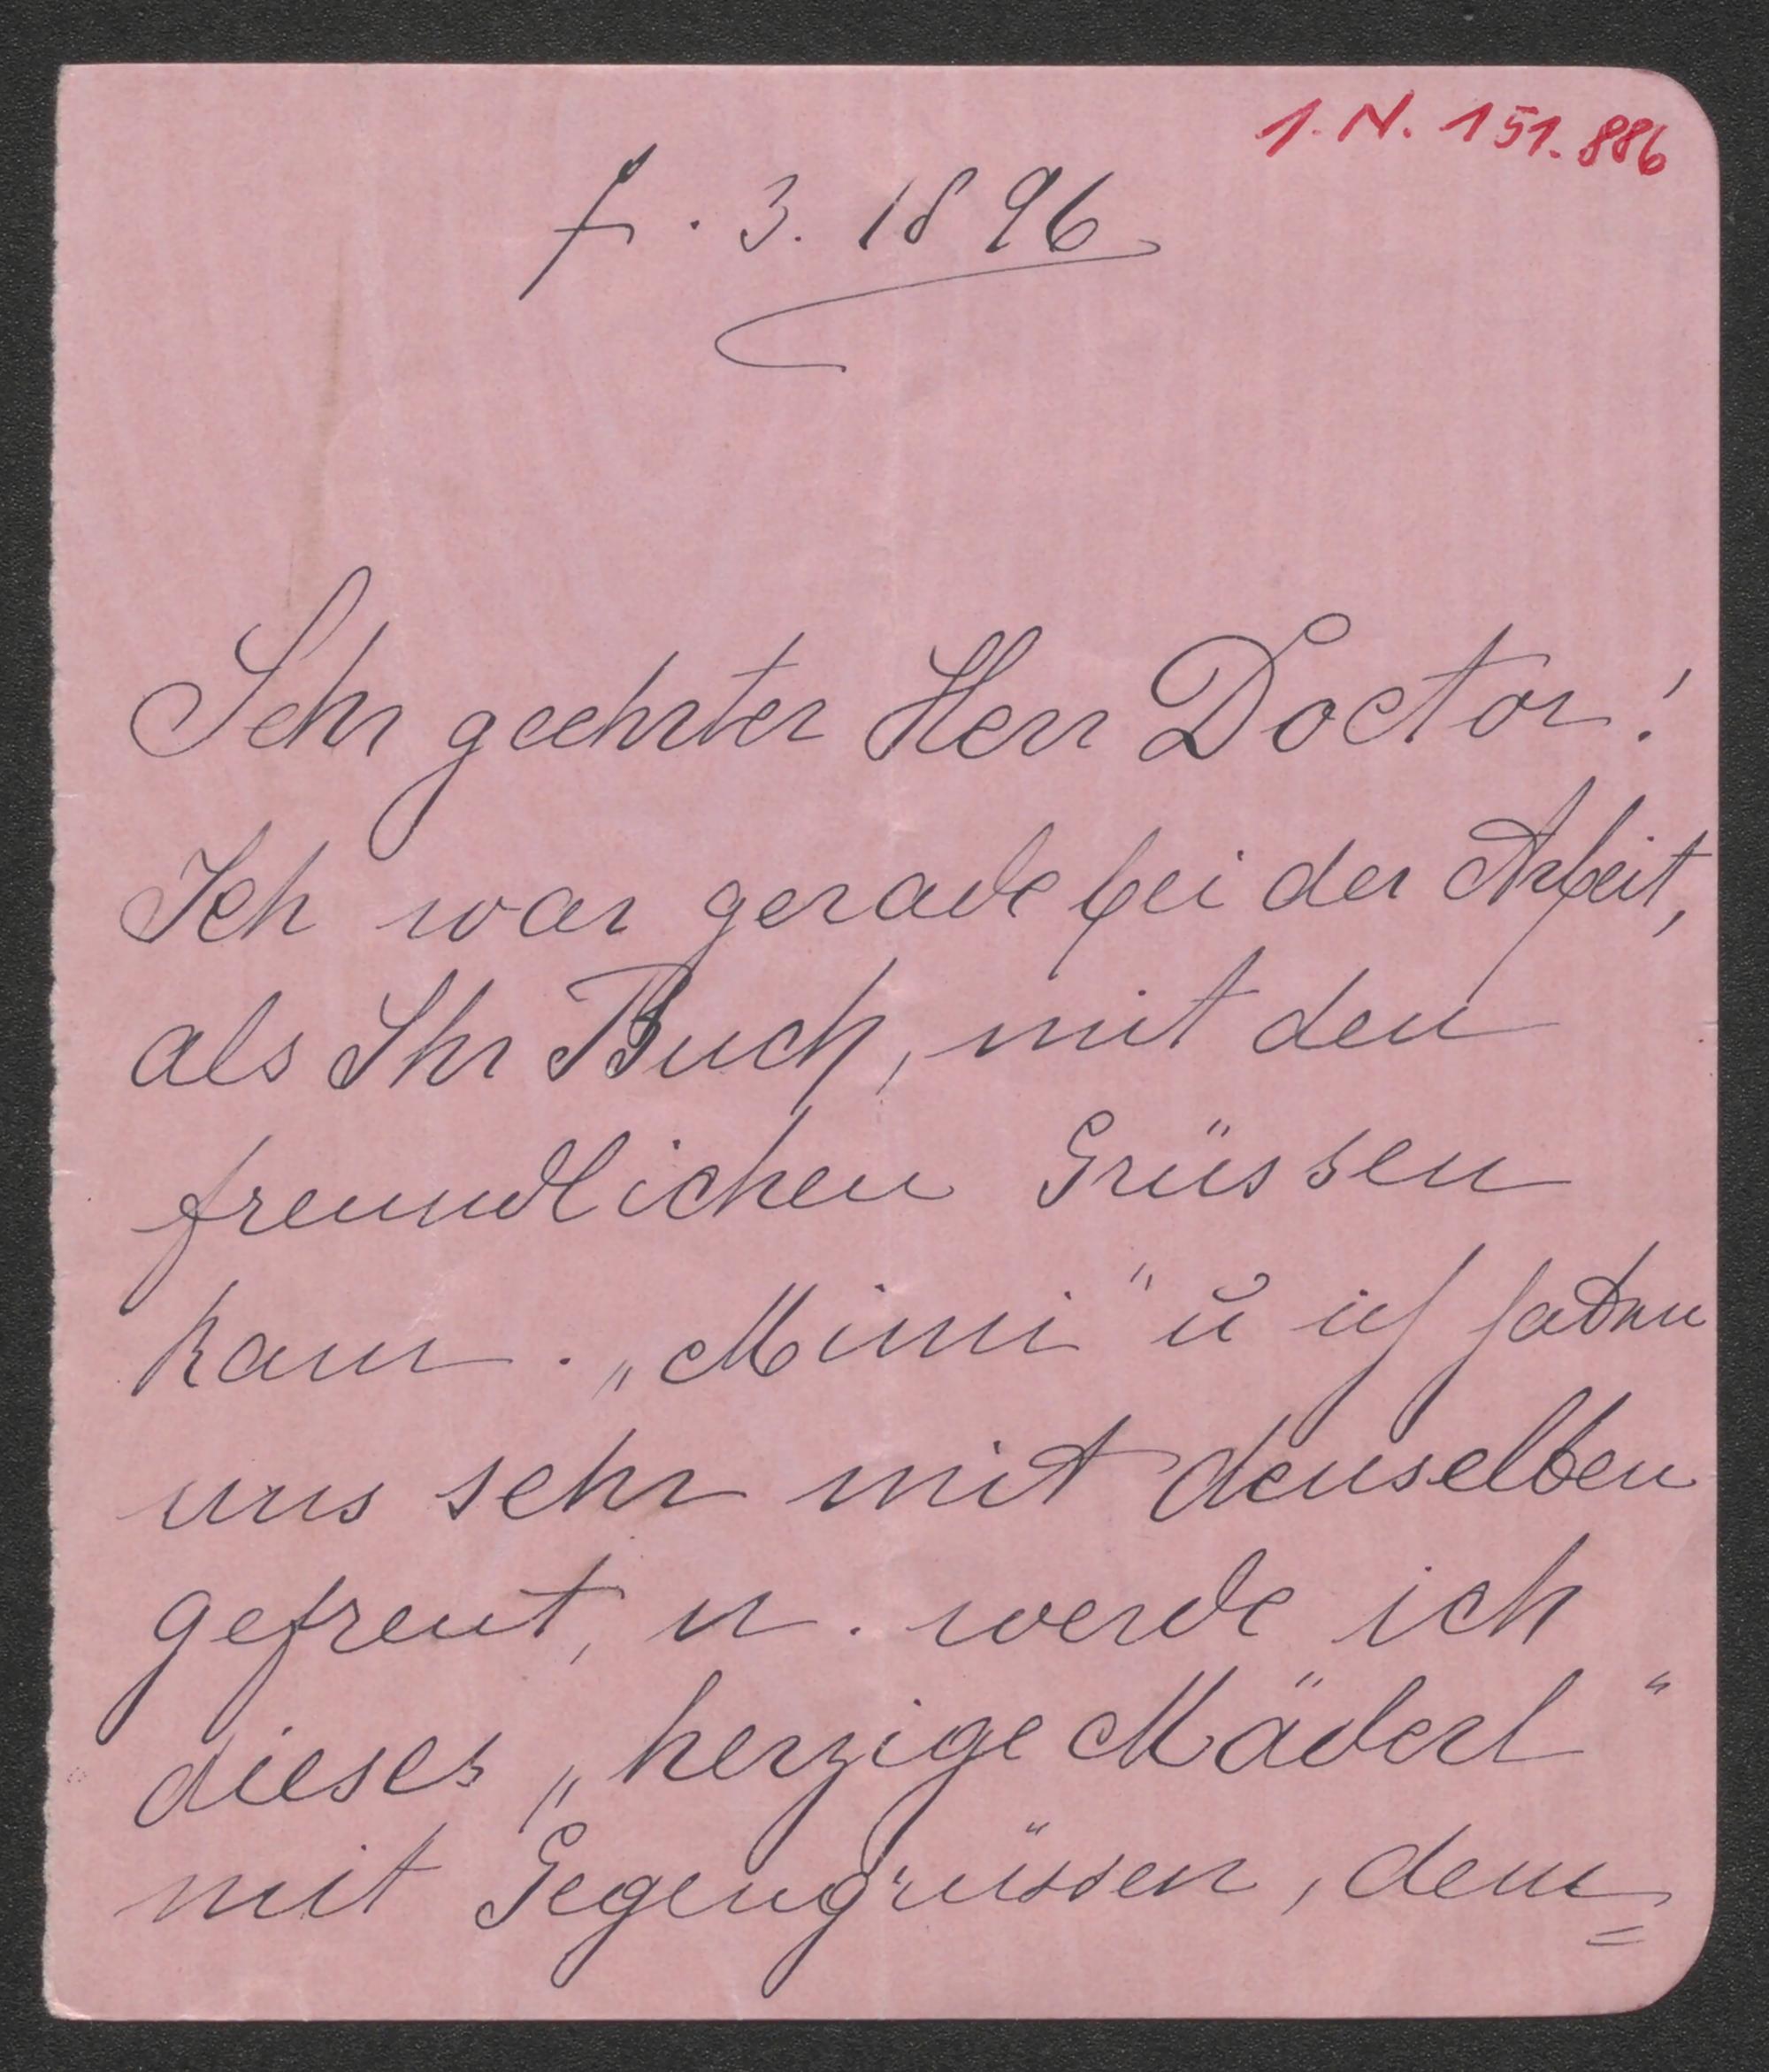 I. N. 151.886
7. 3. 1896
Sehr geehrter Herr Doctor!
Ich war gerade bei der Arbeit,
als Ihr Buch, mit den
freundlichen Grüssen
kam. „Mimi“ u ich haben
uns sehr mit denselben
gefreut, u. werde ich
dieses „herzige Mäderl“
mit Gegengrüssen, dem=